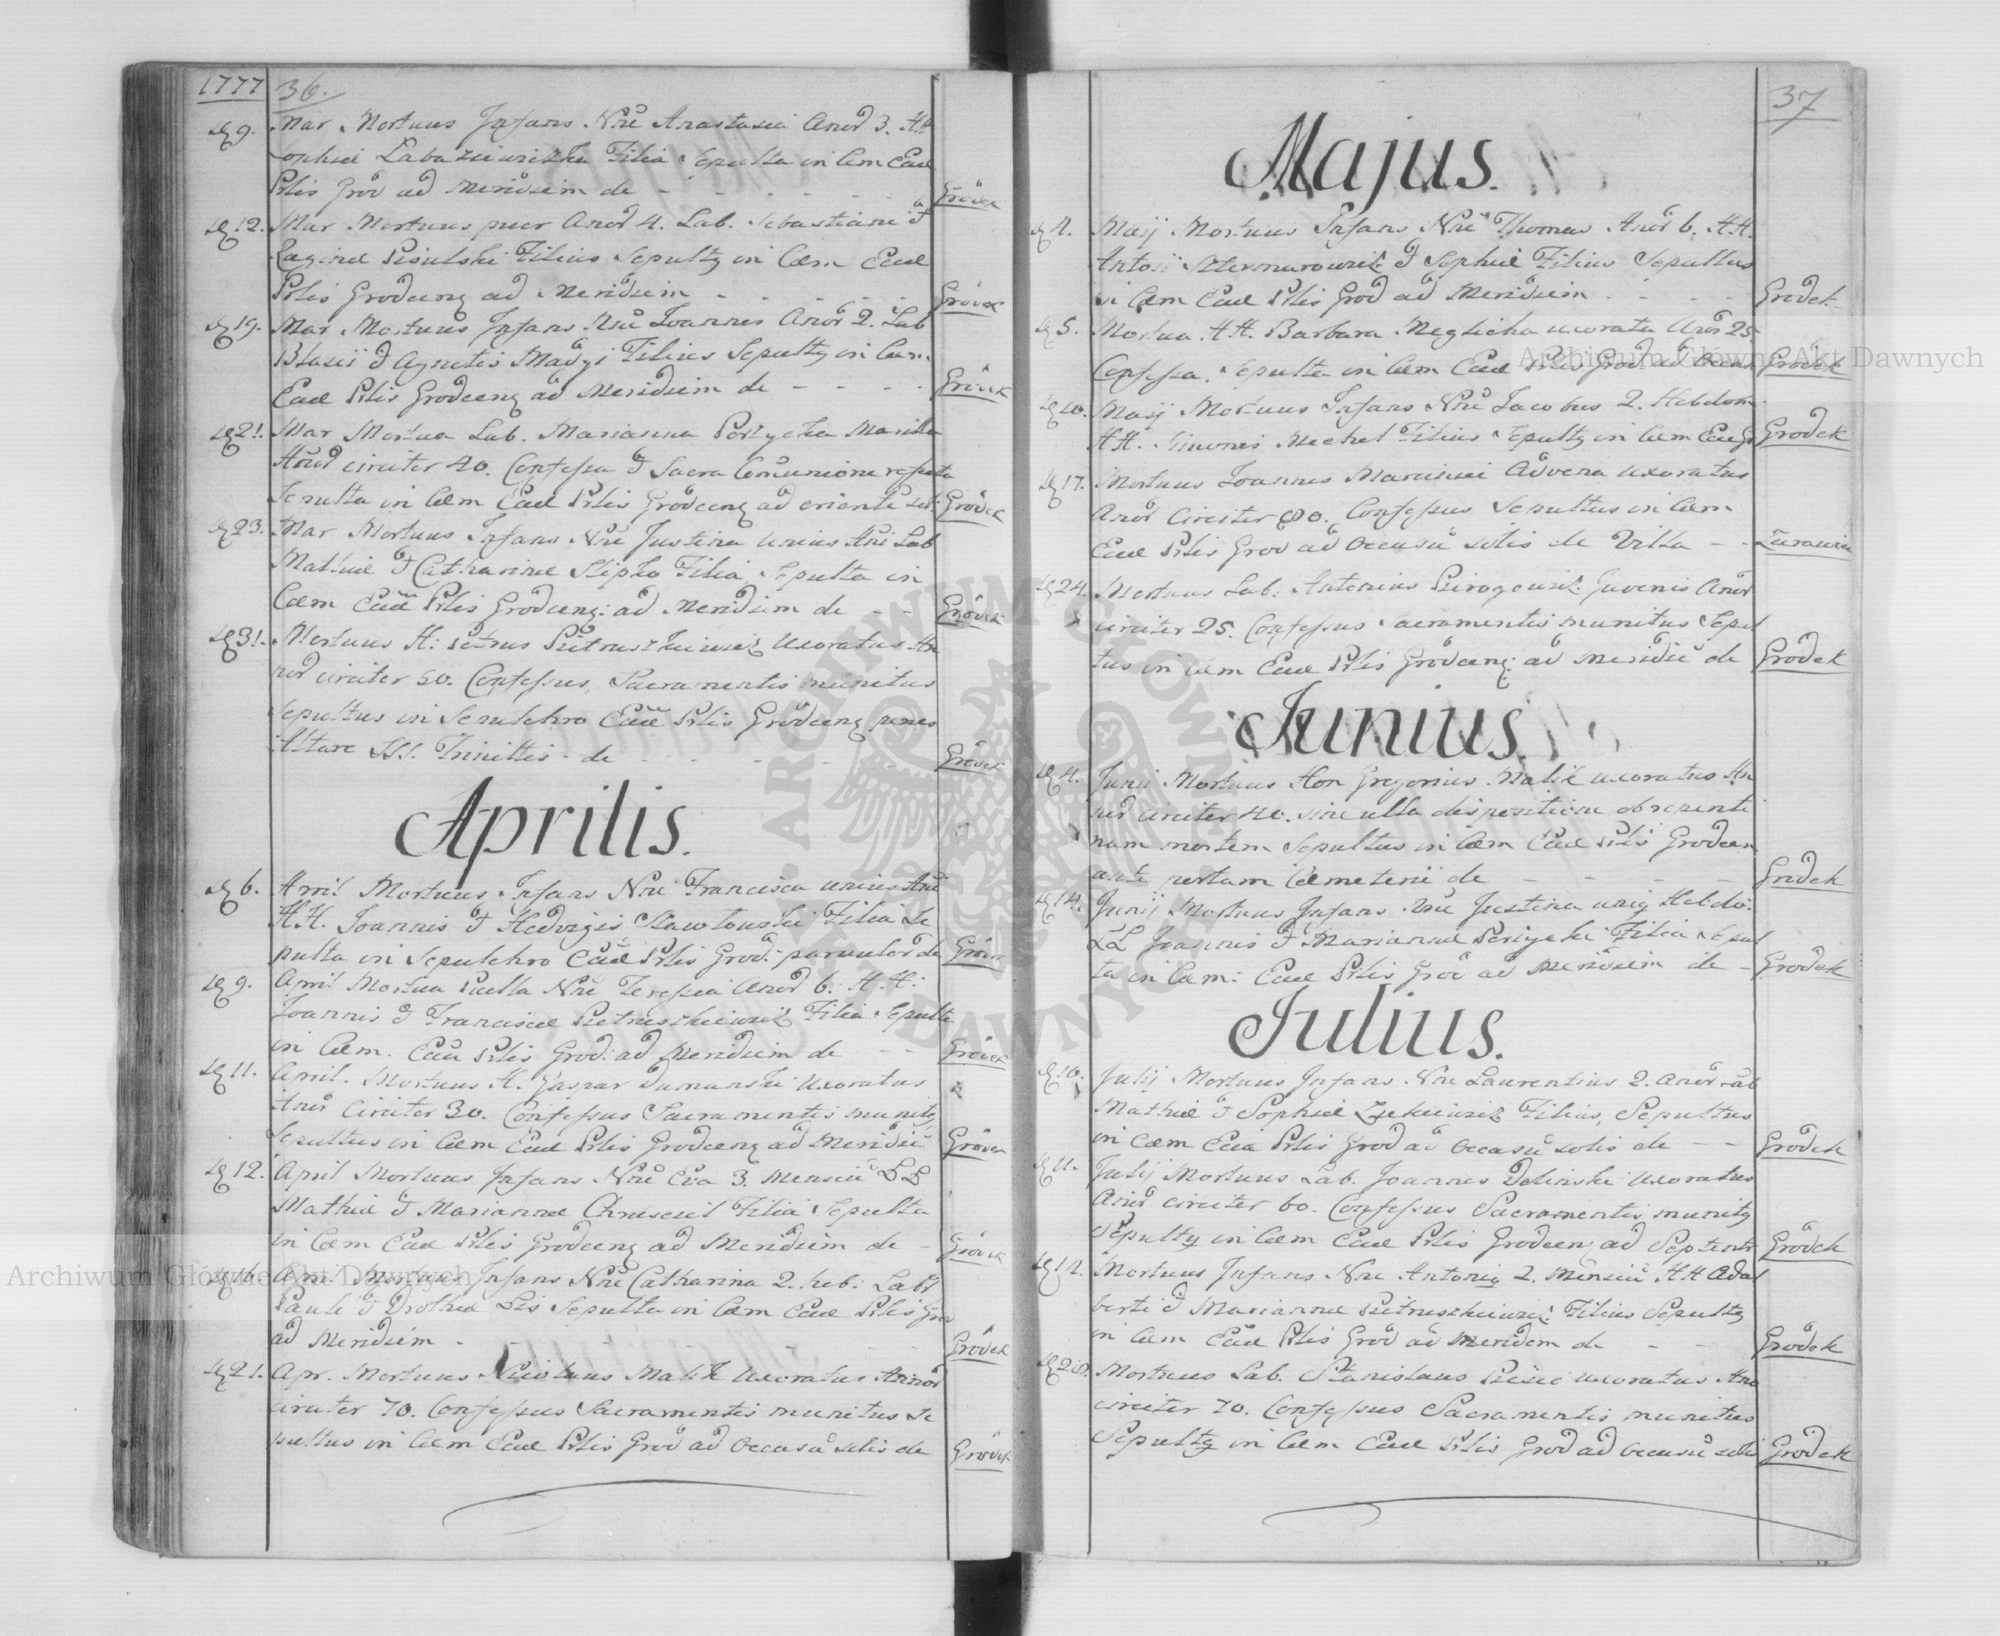 1777 36.
d 9. Mar Mortuus Infans Nne Anastasia Anor 3. HH
Sophiae Filia Sepulta in Cem Eccl
Prlis Grod ad Meridiem de - - - - - - Grodek
d 12. Mar Mortuus puer Anor 4. Lab. Sebastiani et
Reginae Pisulski Filius Sepultq in Cem Eccl
Prlis Grodecenq ad Meridiem - - - - Grodek
d 19. Mar Mortuus Infans Nne Ioannes Anor 2. Lab
Blasii et Agnetis Madyi Filius Sepultq in Cem
Eccl Prlis Grodecenq ad Meridiem de - - - - Grodek
d 21. Mar Mortua Lab. Marianna Marita
Anor circiter 40. Confessa et Sacra Comunione refecta
Sepulta in Cem Eccl Prlis Grodecenq ad oriente sol. Grodek
d 23. Mar Mortuus Infans Nne Justina unius Ani Lab
Mathiae et Catharinae Slipko Filia Sepulta in
Cem Eccl Prlis Grodecenq: ad Meridiem de - - Grodek
d 31. Mortuus H: Petrus Pietruszkiewicz Uxoratus An
nor circiter 50. Confessus Sacramentis munitus
Sepultus in Sepulchro Eccl Prlis Grodecenq penes
Altare SSS. Trinittis - de - - - - - Grodek
Aprilis.
d 6. April Mortuus Infans Nne Francisca unius Ani
HH. Joannis et Hedvigis Filia Se
pulta in Sepulchro Eccl Prlis Grod: parvulor de Grodek
d 9. April Mortua Puella Nne Teressia Anor 6. HH:
Ioannis et Franciscae Pietruszkiewicz Filia Sepulta
in Cem. Eccl Prlis Grod: ad Meridiem de - - Grodek
d 11. April. Mortuus H. Gaspar Dumanski Uxoratus
Anor Circiter 30. Confessus Sacramentis munitq
Sepultus in Cem Eccl Prlis Grodecenq ad Meridie Grodek
d 12. April Mortuus Infans Nne Eva 3. Mensiu LL
Mathiae et Mariannae Filia Sepulta
in Cem Eccl Prlis Grodecenq ad Meridiem de - Grodek
d 16. Apri Mortua Infans Nne Catharina 2. heb: Labr
Pauli et Drotheae Lis Sepulta in Cem Eccl Prlis Gro
ad Meridiem - - - - - - - Grodek
d 21. Apr. Mortuus Nicolaus Malik Uxoratus Annor
circiter 70. Confessus Sacramentis munitus Se
pultus in Cem Eccl Prlis Grod ad Occasu solis de Grodek
37
Majus.
d 4. Maij Mortuus Infans Nne Thomas Anor 6. HH.
Antonii et Sophiae Filius Sepultus
in Cem Eccl Prlis Grod ad Meridiem - - - - Grodek
d 5. Mortua HH. Barbara Meglicka uxorata Anor 25.
Confessa. Sepulta in Cem Eccl Prlis Grod ad Grodek
d 10. Maij Mortuus Infans Nne Jacobus 2. Hebdom.
HH. Simonis Mechel Filius Sepultq in Cem Eccl Gr Grodek
d 17. Mortuus Ioannes Advena Uxoratus
Anor Circiter 80. Confessus Sepultus in Cem
Eccl Prlis Grod ad Occasu solis de Villa - - Zurawin
d 24. Mortuus Lab: Antonius Juvenis Anor
circiter 25. Confessus Sacramentis munitus Sepul
tus in Cem Eccl Prlis Grodecenq: ad Meridie de Grodek
Junius.
d 4. Junii Mortuus Hon Gregorius Malik uxoratus An
nor circiter 40. sine ulla dispositione ob repenti
nam mortem Sepultus in Cem Eccl Prlis Grodecen
ante portam Cemeterii de - - - - - Grodek
d 14. Junij Mortuus Infans Nne Justina uniq Hebdo:
LL Joannis et Mariannae Filia Sepul
ta in Cem: Eccl Prlis Grod ad Meridiem de - Grodek
Julius.
d 10. Julij Mortuus Infans Nne Laurentius 2. Anor Lab
Mathiae et Sophiae Filius, Sepultus
in Cem Eccl Prlis Grod ad Occasu solis de - - Grodek
d 11. Julij Mortuus Lab. Joannes Delinski Uxoratus
Anor circiter 60. Confessus Sacramentis munitq
Sepultq in Cem Eccl Prlis Grodecen ad Septentr Grodek
d 12. Mortuus Infans Nne Antoniq 2. Mensiu HH Adal
berti et Mariannae Pietruszkiewicz Filius Sepultq
in Cem Eccl Prlis Grod ad Meridiem de - - Grodek
d 20. Mortuus Lab. Stanislaus Uxoratus Ano
circiter 70. Confessus Sacramentis munitus
Sepultq in Cem Eccl Prlis Grod ad Occasu solis Grodek
Archiwum Główne Akt Dawnych
Archiwum Główne Akt Dawnych